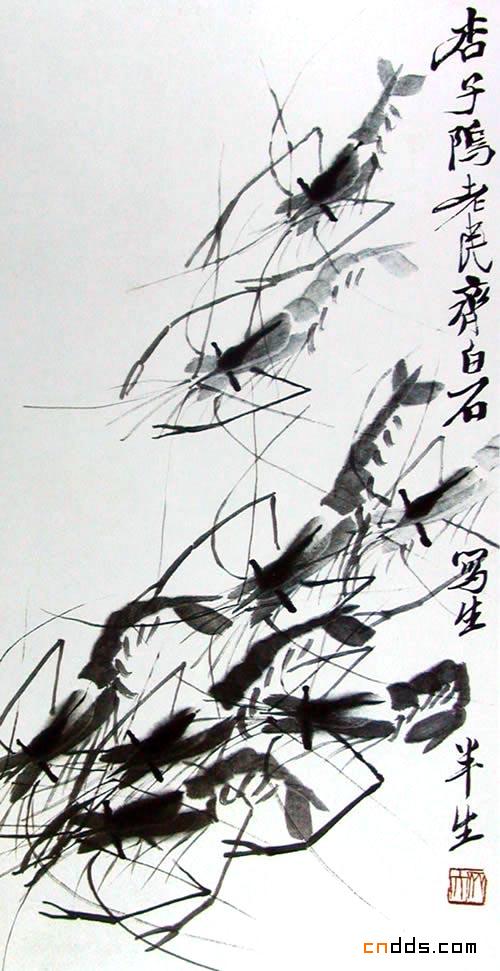 杏子隖老民齊白石
写生
半生
cndds.com